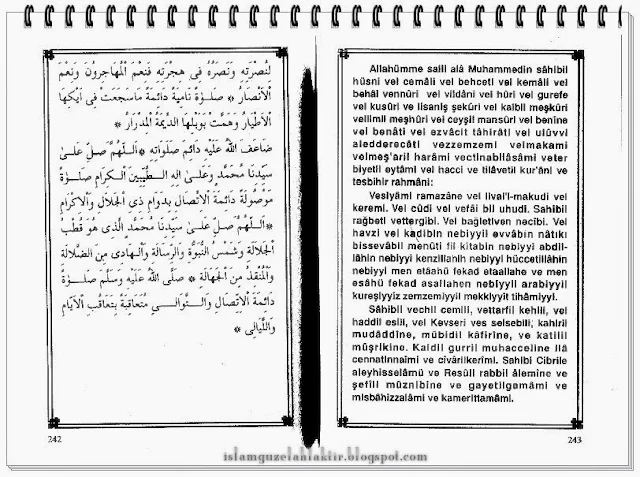 لِنُصْرَتِهِ وَنَصَرُوهُ فِى هِجْرَتِهِ فَنِعْمَ الْمُهَاجِرُونَ وَنِعْمَ
الْاَنْصَارُ * صَلٰوةً نَامِيَةً دَائِمَةً مَاسَجَعَتْ فِى اَيْكِهَا
الْاَطْيَارُ وَهَمَتْ بِوَبْلِهَا الدِّيمَةُ الْمِدْرَارُ *
ضَاعَفَ اللّٰهُ عَلَيْهِ دَائِمَ صَلَوَاتِهِ * اَللّٰهُمَّ صَلِّ عَلٰى
سَيِّدِنَا مُحَمَّدٍ وَعَلٰى اٰلِهِ الطَّيِّبِينَ الْكِرَامِ صَلٰوةً
مَوْصُولَةً دَائِمَةَ الْاِتِّصَالِ بِدَوَامِ ذِى الْجَلَالِ وَالْاِكْرَامِ
*اَللّٰهُمَّ صَلِّ عَلٰى سَيِّدِنَا مُحَمَّدٍ الَّذِى هُوَ قُطْبُ
الْجَلَالَةِ وَشَمْسُ النُّبُوَّةِ وَالرِّسَالَةِ وَالْهَادِى مِنَ الضَّلَالَةِ
وَالْمُنْقِذُ مِنَ الْجَهَالَةِ * صَلَّى اللّٰهُ عَلَيْهِ وَسَلَّمَ صَلٰوةً
دَائِمَةَ الْاِتِّصَالِ وَالتَّوَالِى مُتَعَاقِبَةً بِتَعَاقُبِ الْاَيَّامِ
وَاللَّيَالِى *
242
Allahümme salli alâ Muhammedin sâhibil
hüsni vel cemâli vel behceti vel kemâli vel
behâi vennûri vel vildâni vel hûri vel gurefe
vel kusûri ve lisaniş şekûri vel kalbil meşkûri
velilmil meşhûri vel ceyşil mansûri vel benîne
vel benâti vel ezvâcit tâhirâti vel ulûvvi
aledderecâti vezzemzemi velmakami
velmeş'aril harâmi vectinabilâsâmi veter
biyetil eytâmi vel hacci ve tilâvetil kur'âni ve
tesbihir rahmâni:
Vesiyâmi ramazâne vel livai'l-makudi vel
keremi. Vel cûdi vel vefâi bil uhudi. Sahibil
rağbeti vettergibi. Vel bağletiven necîbi. Vel
havzi vel kadibin nebiyyil evvâbin nâtıkı
bissevâbil menûti fil kitabin nebiyyi abdil-
lâhin nebiyyi kenzillahin nebiyyi hüccetillâhin
nebiyyi men etâahû fekad etaallahe ve men
esâhü fekad asallahen nebiyyil arabiyyil
kureşiyyiz zemzemiyyil mekkiyyit tihâmiyyi.
Sâhibil vechil cemili, vettarfil kehlli, vel
haddil esili, vel Kevseri ves selsebili, kahiril
mudâddîne, mübidil kâfirine, ve katilil
müşrikine. Kaidil gurril muhacceline ilâ
cennatinnaîmi ve civârilkerîmi. Sahibi Cibrile
aleyhisselâmü ve Resûli rabbil âlemine ve
şefiil müznibîne ve gayetilgamâmi ve
misbâhizzalâmi ve kamerittamâmi.
243
islamguzelahlaktir.blogspot.com